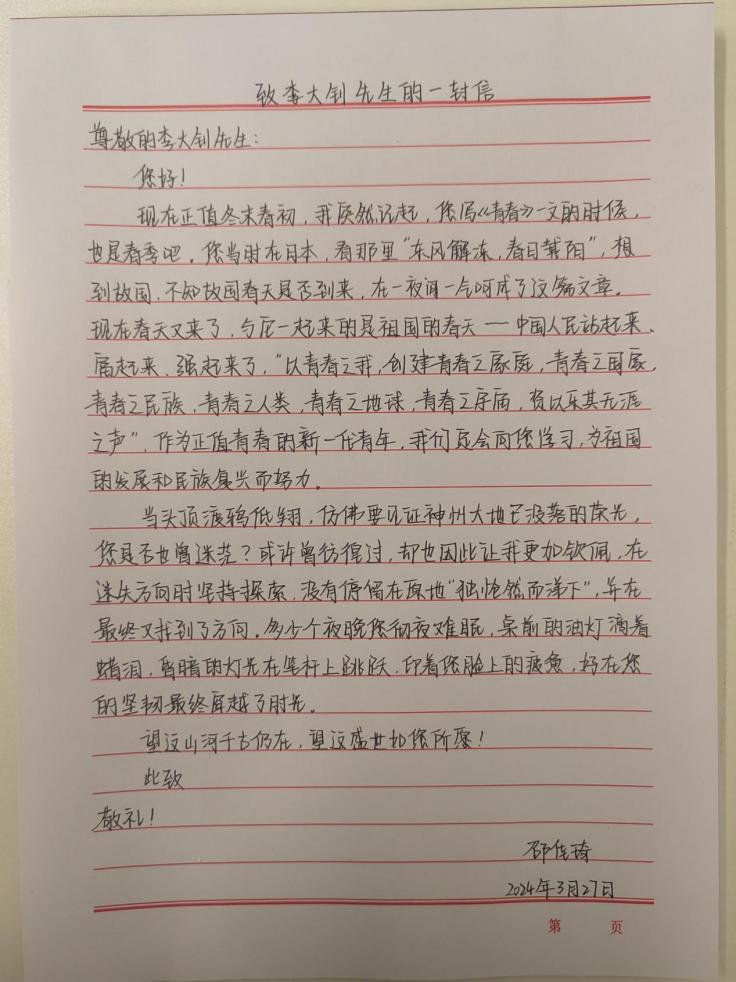 致李大钊先生的一封信
尊敬的李大钊先生：
您好！
现在正值冬末春初，我陡然记起，您写《青春》一文的时候，
也是春季吧。您当时在日本，看那里“东风解冻，春日载阳”，想
到故国，不知故国春天是否到来，在一夜间一气呵成了这篇文章。
现在春天又来了，与它一起来的是祖国的春天——中国人民站起来、
富起来、强起来了，“以青春之我，创建青春之家庭，青春之国家，
青春之民族，青春之人类，青春之地球，青春之宇宙，资以乐其无涯
之声”，作为正值青春的新一代青年，我们定会向您学习，为祖国
的发展和民族复兴而努力。
当头顶渡鸦低翔，仿佛要见证神州大地已没落的荣光，
您是否也曾迷茫？或许曾彷徨过，却也因此让我更加钦佩，在
迷失方向时坚持探索，没有停留在原地“独怆然而涕下”，并在
最终又找到了方向。多少个夜晚您彻夜难眠，桌前的油灯滴着
蜡泪，昏暗的灯光在笔杆上跳跃，印着您脸上的疲惫，好在您
的坚韧最终穿越了时光。
望这山河千古仍在，望这盛世如您所愿！
此致
敬礼！
邵佳琦
2024年3月27日
第 页